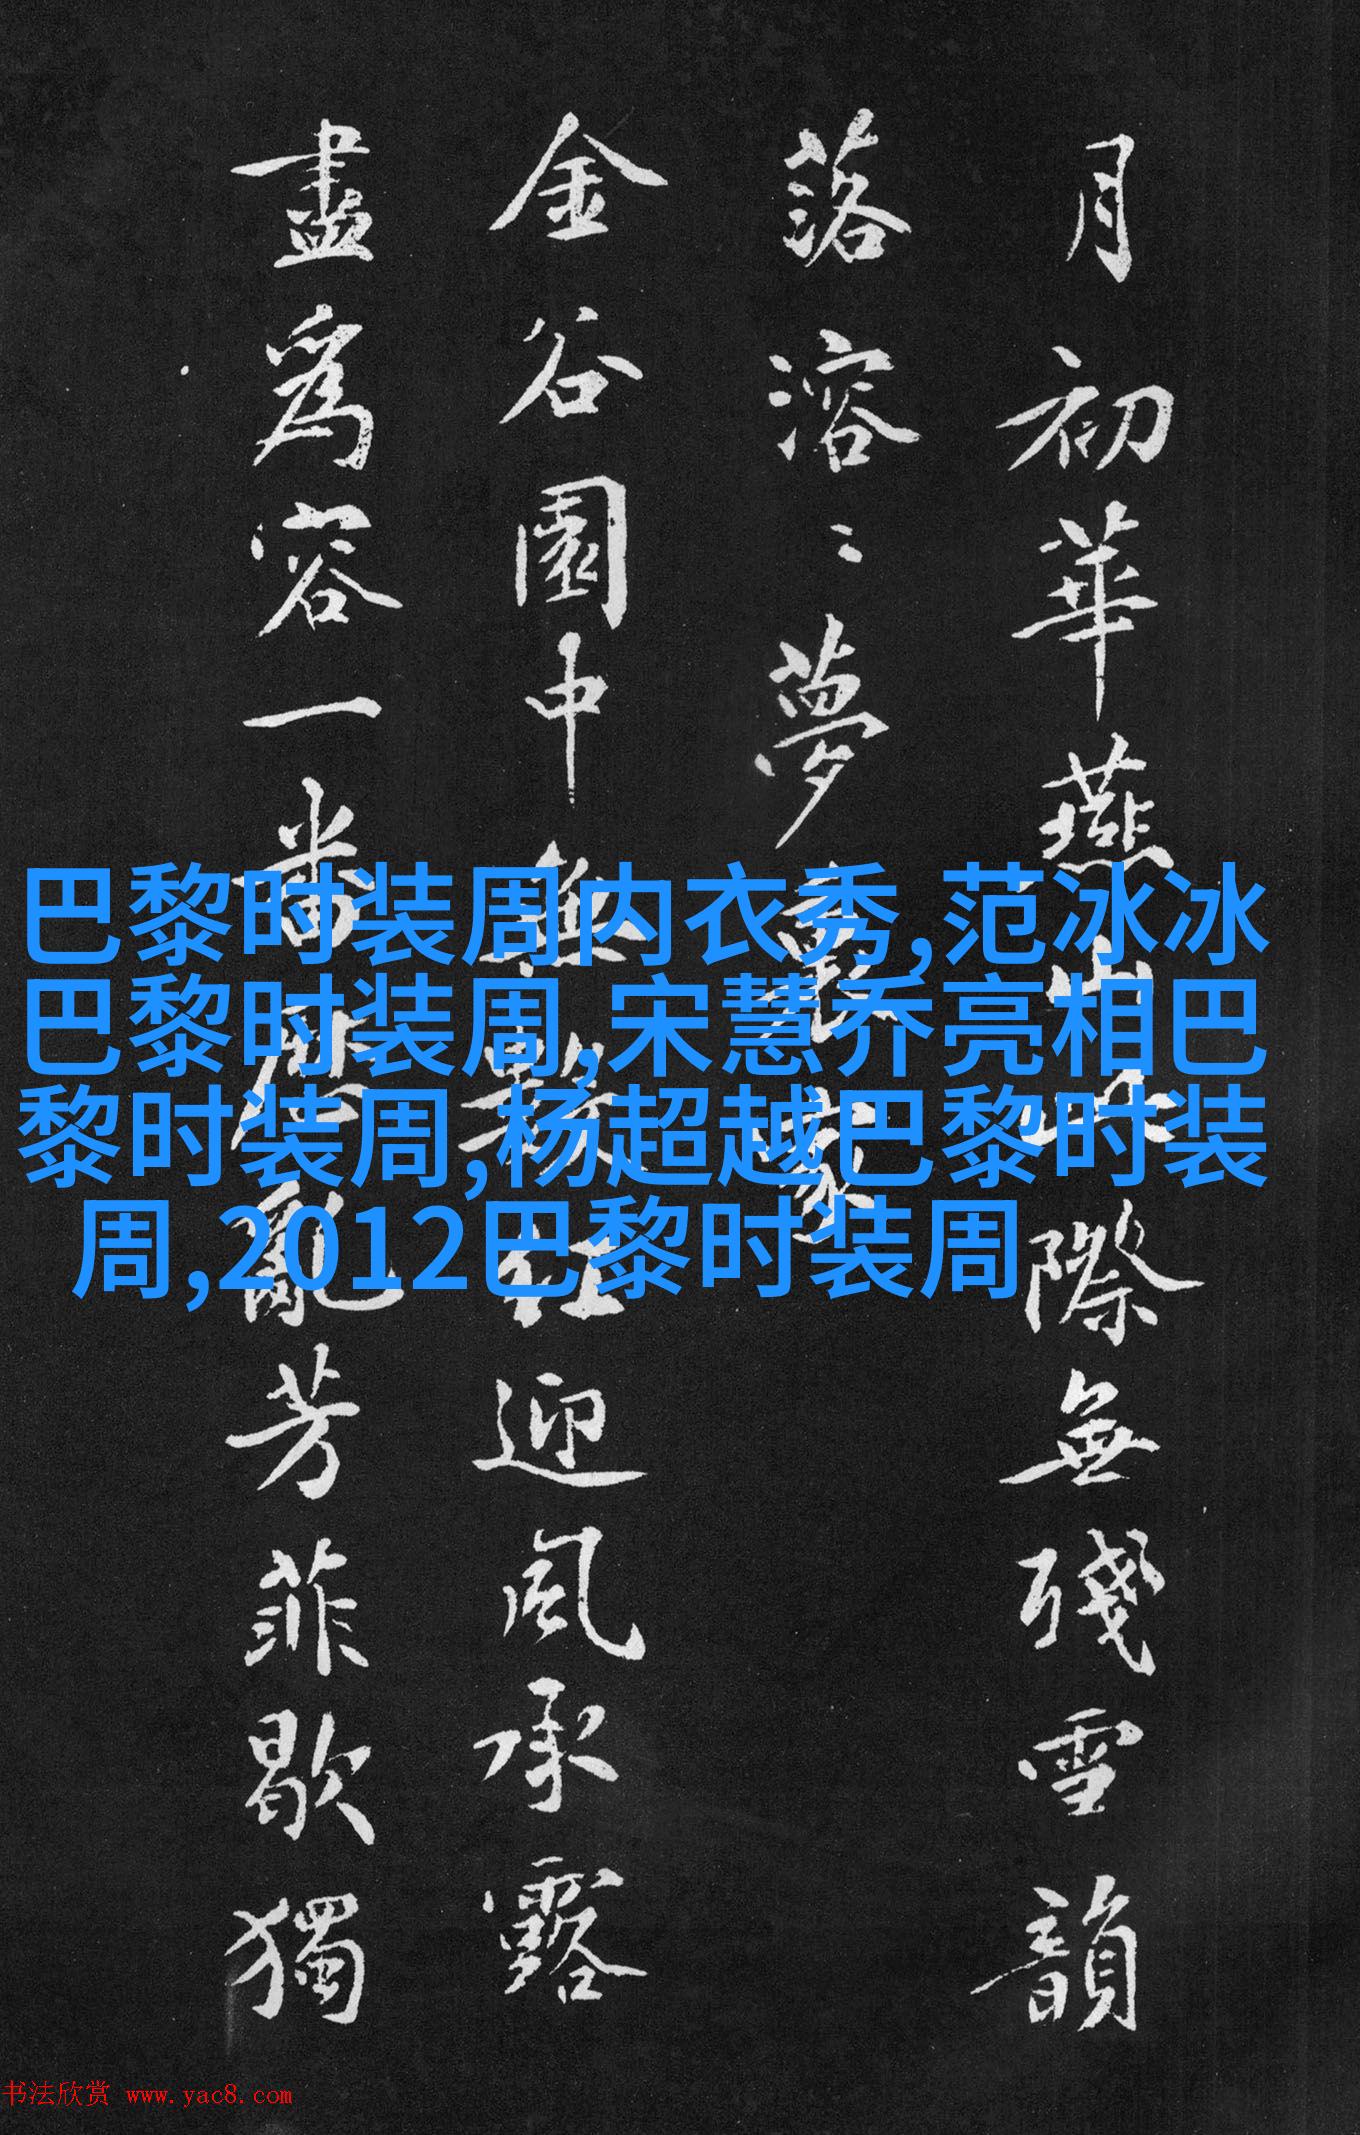 月初華燕山下際無殘雪韻
落溶〻夢裏家
金谷園中無數紅迎風承露
盡爲容一番磨亂芳菲歇獨
巴黎时装周内衣秀,范冰冰
巴黎时装周,宋慧乔亮相巴
黎时装周,杨超越巴黎时装
周,2012巴黎时装周
书法欣赏 www.yac8.com